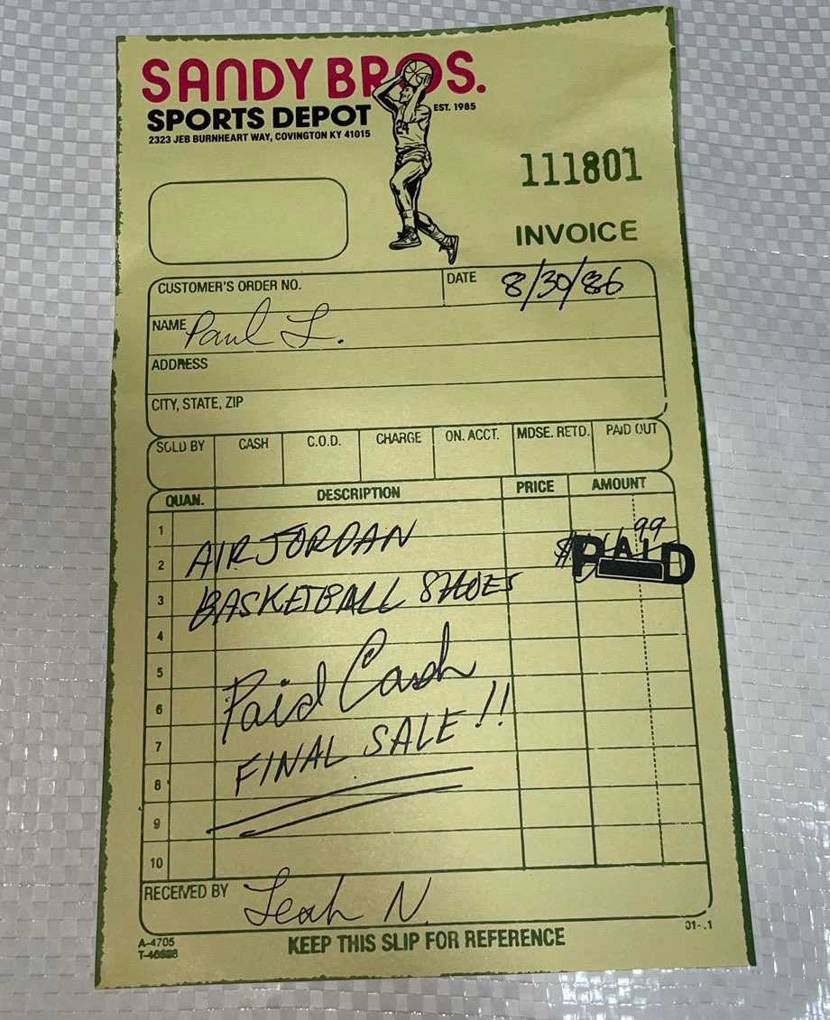 SANDY BROS.
SPORTS DEPOT
EST. 1985
2323 JEB BURNHEART WAY, COVINGTON KY 41015
24
111801
INVOICE
CUSTOMER'S ORDER NO.
DATE 8/30/86
NAME Paul L.
ADDRESS
CITY, STATE, ZIP
SOLD BY CASH C.O.D. CHARGE ON. ACCT. MDSE. RETD. PAID OUT
QUAN. DESCRIPTION PRICE AMOUNT
1
2 AIR JORDAN $ 99 PAID
3 BASKETBALL SHOES
4
5
6 Paid Cash
7 FINAL SALE!!
8
9
10
RECEIVED BY Leah N.
A-4705
KEEP THIS SLIP FOR REFERENCE